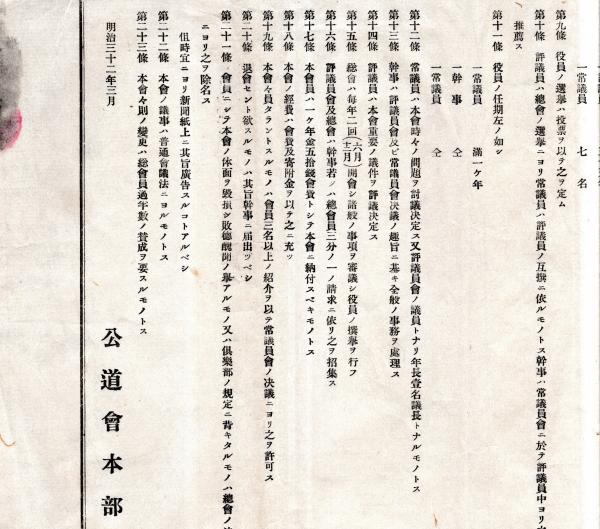 一常議員　七　名
第九條　役員ノ選擧ハ投票ヲ以テ之ヲ定ム
第十條　評議員ハ總會ノ選擧ニヨリ常議員ハ評議員ノ互撰ニ依ルモノトス幹事ハ常議員會ニ於テ評議員中ヨリ
推薦ス
第十一條　役員ノ任期左ノ如シ
一常議員　滿一ケ年
一幹事　仝
一常議員　仝
第十二條　常議員ハ本會時々ノ問題ヲ討議決定ス又評議員會ノ議員トナリ年長壹名議長トナルモノトス
第十三條　幹事ハ評議員會及ビ常議員會決議ノ趣旨ニ基キ全般ノ事務ヲ處理ス
第十四條　評議員ハ本會重要ノ議件ヲ評議決定ス
第十五條　總會ハ毎年二回(六月十二月)開會シ諸般ノ事項ヲ審議シ役員ノ撰擧ヲ行フ
第十六條　評議員會及總會ハ幹事若シクハ總會員三分ノ一ノ請求ニ依リ之ヲ招集ス
第十七條　本會員ハ一ケ年金五拾錢會費トシテ本會ニ納付スベキモノトス
第十八條　本會ノ經費ハ會費及寄附金ヲ以テ之ニ充ツ
第十九條　本會々員タラントスルモノハ會員三名以上ノ紹介ヲ以テ常議員會ノ決議ニヨリ之ヲ許可ス
第二十條　退會セント欲スルモノハ其旨幹事ニ届出ツベシ
第二十一條　會員ニシテ本會ノ体面ヲ毀損シ敗德醜聞ノ擧アルモノ又ハ俱樂部ノ規定ニ背キタルモノハ總會ノ
ニヨリ之ヲ除名ス
但時宜ニヨリ新聞紙上ニ其旨廣告スルコトアルベシ
第二十二條　本會ノ議事ハ普通會議法ニヨルモノトス
第二十三條　本會々則ノ變更ハ總會員過半數ノ贊成ヲ要スルモノトス
明治三十二年三月
公道會本部